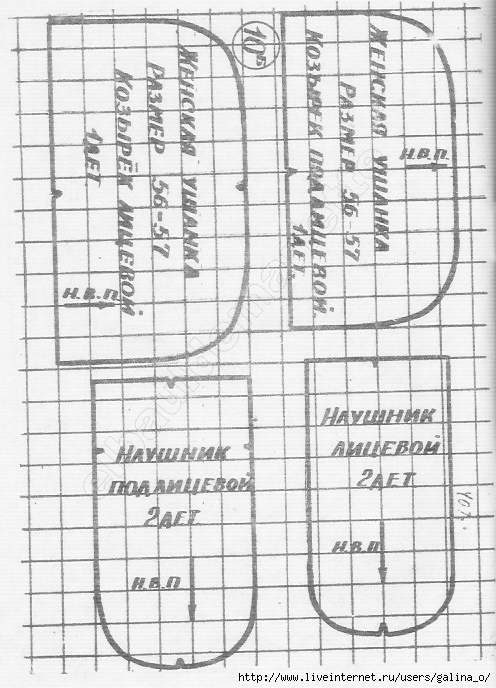 10
ЖЕНСКАЯ УШАНКА
РАЗМЕР 56-57
КОЗЫРЁК ЛИЦЕВОЙ
1 ДЕТ
Н.В.П.
ЖЕНСКАЯ УШАНКА
РАЗМЕР 56-57
КОЗЫРЕК ПОДЛИЦЕВОЙ
1 ДЕТ.
Н.В.П.
НАУШНИК
ПОДЛИЦЕВОЙ
2 ДЕТ
Н.В.П
НАУШНИК
ЛИЦЕВОЙ
2 ДЕТ
Н.В.П
http://www.liveinternet.ru/users/galina_o/